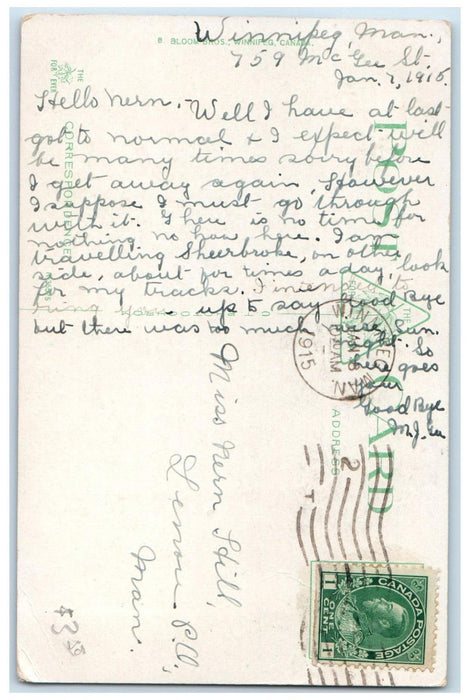 Winnipeg, Man.,
8. BLOOM BROS., WINNIPEG, CANADA.
759 McGee St.
Jan. 7, 1915.
Hello Nern. - Well I have at last
got to normal & I expect will
be many times sorry before
I get away again, However
I suppose I must go through
with it. There is no time for
nothing no how here. I am
travelling Sheerbroke, on other
side, about for times a day, look
for my tracks. I intended to
ring up to say Good Bye
but there was too much Sun.
night. So
here goes
your
Good Bye
M.J.
THE
FOR
CORRESPONDENCE
POST CARD
THE
ADDRESS
WINNIPEG
JAN 8
AM
1915
MAN
2
Miss Nern Hill,
P.O.,
Man.
$3
CANADA POSTAGE
1 CENT
ONE
1